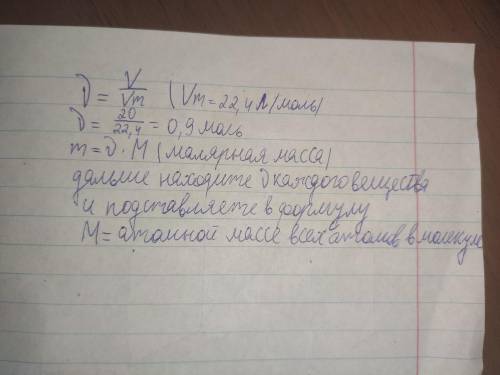 ν = V/Vm (Vm = 22,4 л/моль)
ν = 20/22,4 = 0,9 моль
m = ν · M (малярная масса)
дальше находите ν каждого вещества
и подставляете в формулу
M = атомной массе всех атомов в молекуле